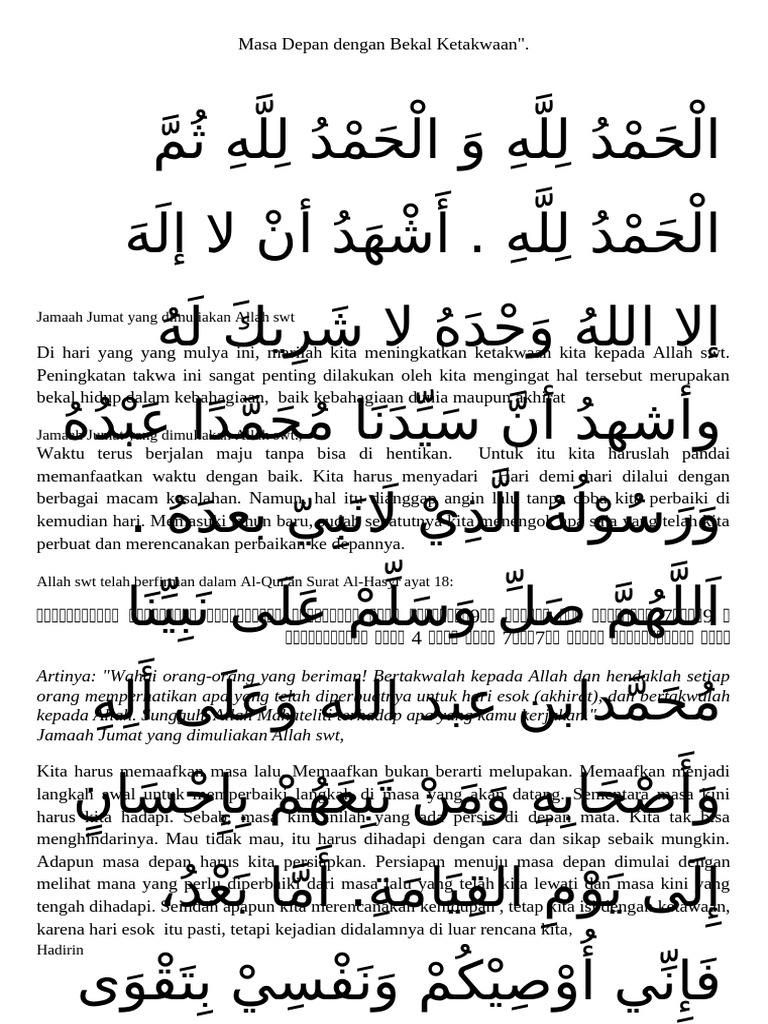 Masa Depan dengan Bekal Ketakwaan".
الْحَمْدُ لِلَّهِ وَ الْحَمْدُ لِلَّهِ ثُمَّ
الْحَمْدُ لِلَّهِ . أَشْهَدُ أنْ لا إلَهَ
إلا اللهُ وَحْدَهُ لا شَرِيكَ لَهُ
وأشهدُ أنَّ سَيِّدَنَا مُحَمَّدًا عَبْدُهُ
وَرَسُوْلُهُ الَّذِيْ لَانَبِيّ بعدَهُ .
اَللَّهُمَّ صَلِّ وَسَلِّمْ عَلَى نَبِيِّنَا
مُحَمَّدابن عبد الله وَعَلَى أَلِهِ
وَأَصْحَابِهِ وَمَنْ تَبِعَهُمْ بِإِحْسَانٍ
إِلَى يَوْمِ القِيَامَةِ. أَمَّا بَعْدُ،
فَإِنِّي أُوْصِيْكُمْ وَنَفْسِيْ بِتَقْوَى
Jamaah Jumat yang dimuliakan Allah swt
Di hari yang yang mulya ini, marilah kita meningkatkan ketakwaan kita kepada Allah swt.
Peningkatan takwa ini sangat penting dilakukan oleh kita mengingat hal tersebut merupakan
bekal hidup dalam kebahagiaan, baik kebahagiaan dunia maupun akhirat
Jamaah Jumat yang dimuliakan Allah swt,
Waktu terus berjalan maju tanpa bisa di hentikan. Untuk itu kita haruslah pandai
memanfaatkan waktu dengan baik. Kita harus menyadari Hari demi hari dilalui dengan
berbagai macam kesalahan. Namun, hal itu dianggap angin lalu tanpa coba kita perbaiki di
kemudian hari. Memasuki tahun baru, sudah sepatutnya kita menengok apa saja yang telah kita
perbuat dan merencanakan perbaikan ke depannya.
Allah swt telah berfirman dalam Al-Qur'an Surat Al-Hasyr ayat 18:
Artinya: "Wahai orang-orang yang beriman! Bertakwalah kepada Allah dan hendaklah setiap
orang memperhatikan apa yang telah diperbuatnya untuk hari esok (akhirat), dan bertakwalah
kepada Allah. Sungguh, Allah Mahateliti terhadap apa yang kamu kerjakan."
Jamaah Jumat yang dimuliakan Allah swt,
Kita harus memaafkan masa lalu. Memaafkan bukan berarti melupakan. Memaafkan menjadi
langkah awal untuk memperbaiki langkah di masa yang akan datang. Sementara masa kini
harus kita hadapi. Sebab, masa kini inilah yang ada persis di depan mata. Kita tak bisa
menghindarinya. Mau tidak mau, itu harus dihadapi dengan cara dan sikap sebaik mungkin.
Adapun masa depan harus kita persiapkan. Persiapan menuju masa depan dimulai dengan
melihat mana yang perlu diperbaiki dari masa lalu yang telah kita lewati dan masa kini yang
tengah dihadapi. apapun kita merencanakan kehidupan , tetap kita isi dengan ketawaan,
karena hari esok itu pasti, tetapi kejadian didalamnya di luar rencana kita,
Hadirin